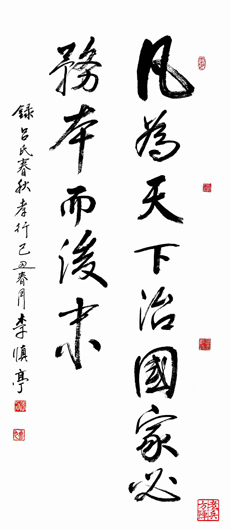 凡為天下治國家必
務本而後末
錄呂氏春秋孝行己丑春月李慎亭